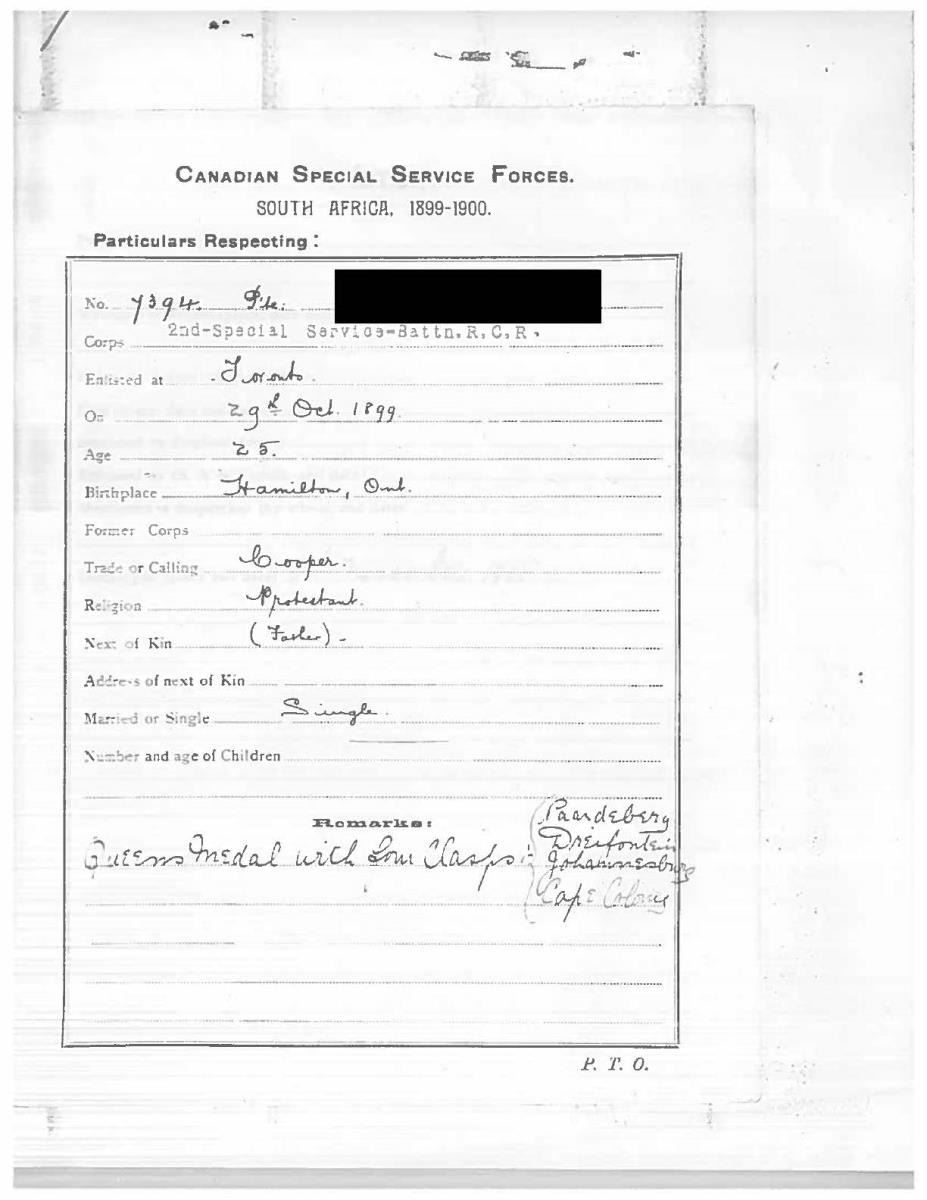 CANADIAN SPECIAL SERVICE FORCES.
SOUTH AFRICA, 1899-1900.
Particulars Respecting:
No. 7394. Pte.
Corps 2nd-Special Service-Battn.R.C.R.
Enlisted at Toronto.
On 29th Oct. 1899.
Age 25.
Birthplace Hamilton, Ont.
Former Corps
Trade or Calling Cooper.
Religion Protestant.
Next of Kin (Father)-
Address of next of Kin
Married or Single Single.
Number and age of Children
Remarks:
Queens Medal with four Clasps:
Paardeberg
Dreifontein
Johannesburg
Cape Colony
P. T. O.